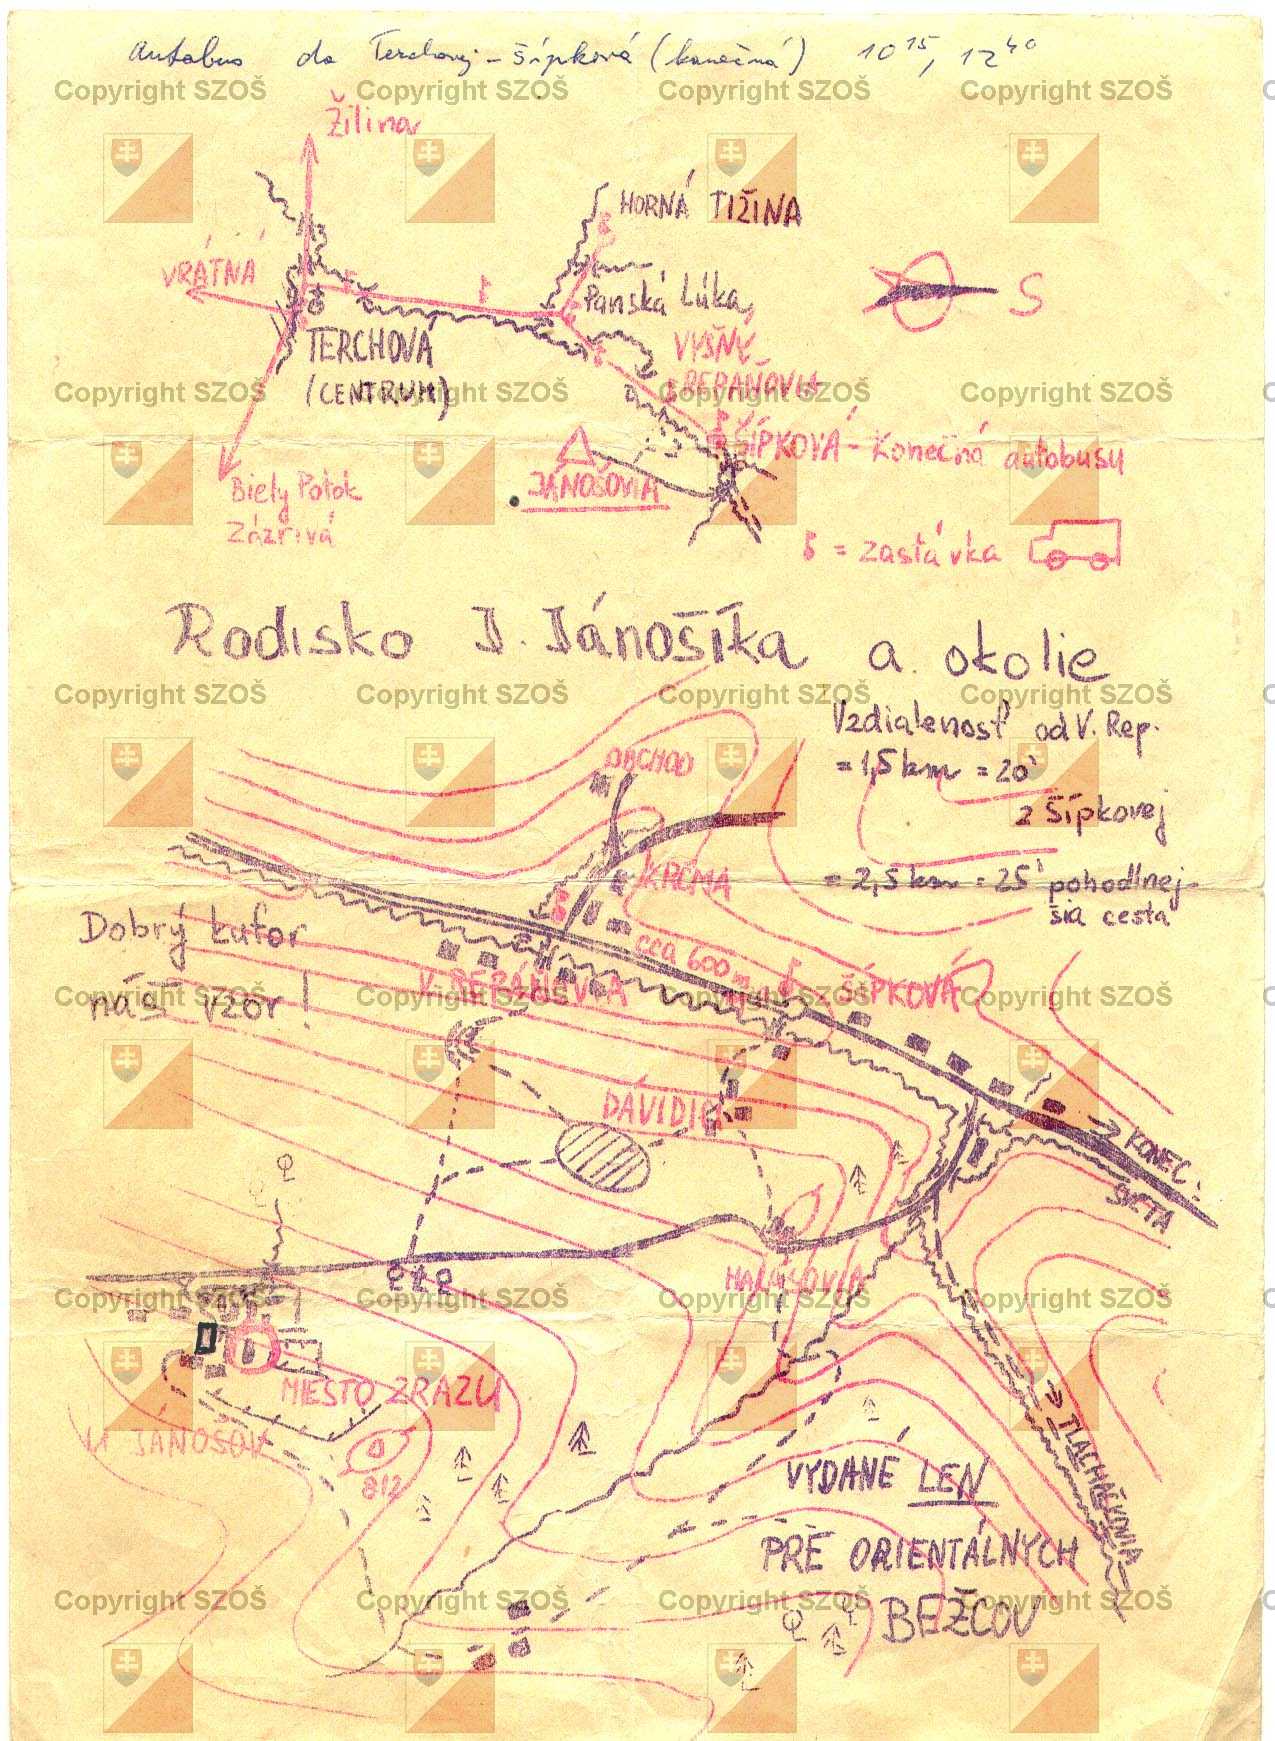 Autobus do Terchovej - Šípková (konečná) 10 15, 12 40
Žilina
HORNÁ TIŽINA
VRÁTNÁ
Panská Lúka,
S
TERCHOVÁ
(CENTRUM)
VYŠNÉ
REPÁŇOVIA
ŠÍPKOVÁ - Konečná autobusu
JÁNOŠOVIA
Biely Potok
Zázrivá
= zastávka
Rodisko J. Jánošíka a okolie
Vzdialenosť od V. Rep.
= 1,5 km = 20'
z Šípkovej
= 2,5 km = 25' pohodlnej-
šia cesta
OBCHOD
KRČMA
Dobrý kufor
náš vzor!
cca 600 m
V. REPÁŇOVIA
ŠÍPKOVÁ
DÁVIDIC
KONIEC
SVETA
HARAŠOVIA
MIESTO ZRAZU
U JÁNOŠOV
812
TLACHAČKOVIA
VYDANÉ LEN
PRE ORIENTÁLNYCH
BEŽCOV
Copyright SZOŠ Copyright SZOŠ Copyright SZOŠ Copyright SZOŠ
Copyright SZOŠ Copyright SZOŠ Copyright SZOŠ Copyright SZOŠ
Copyright SZOŠ Copyright SZOŠ Copyright SZOŠ Copyright SZOŠ
Copyright SZOŠ Copyright SZOŠ Copyright SZOŠ Copyright SZOŠ
Copyright SZOŠ Copyright SZOŠ Copyright SZOŠ Copyright SZOŠ
Copyright SZOŠ Copyright SZOŠ Copyright SZOŠ Copyright SZOŠ